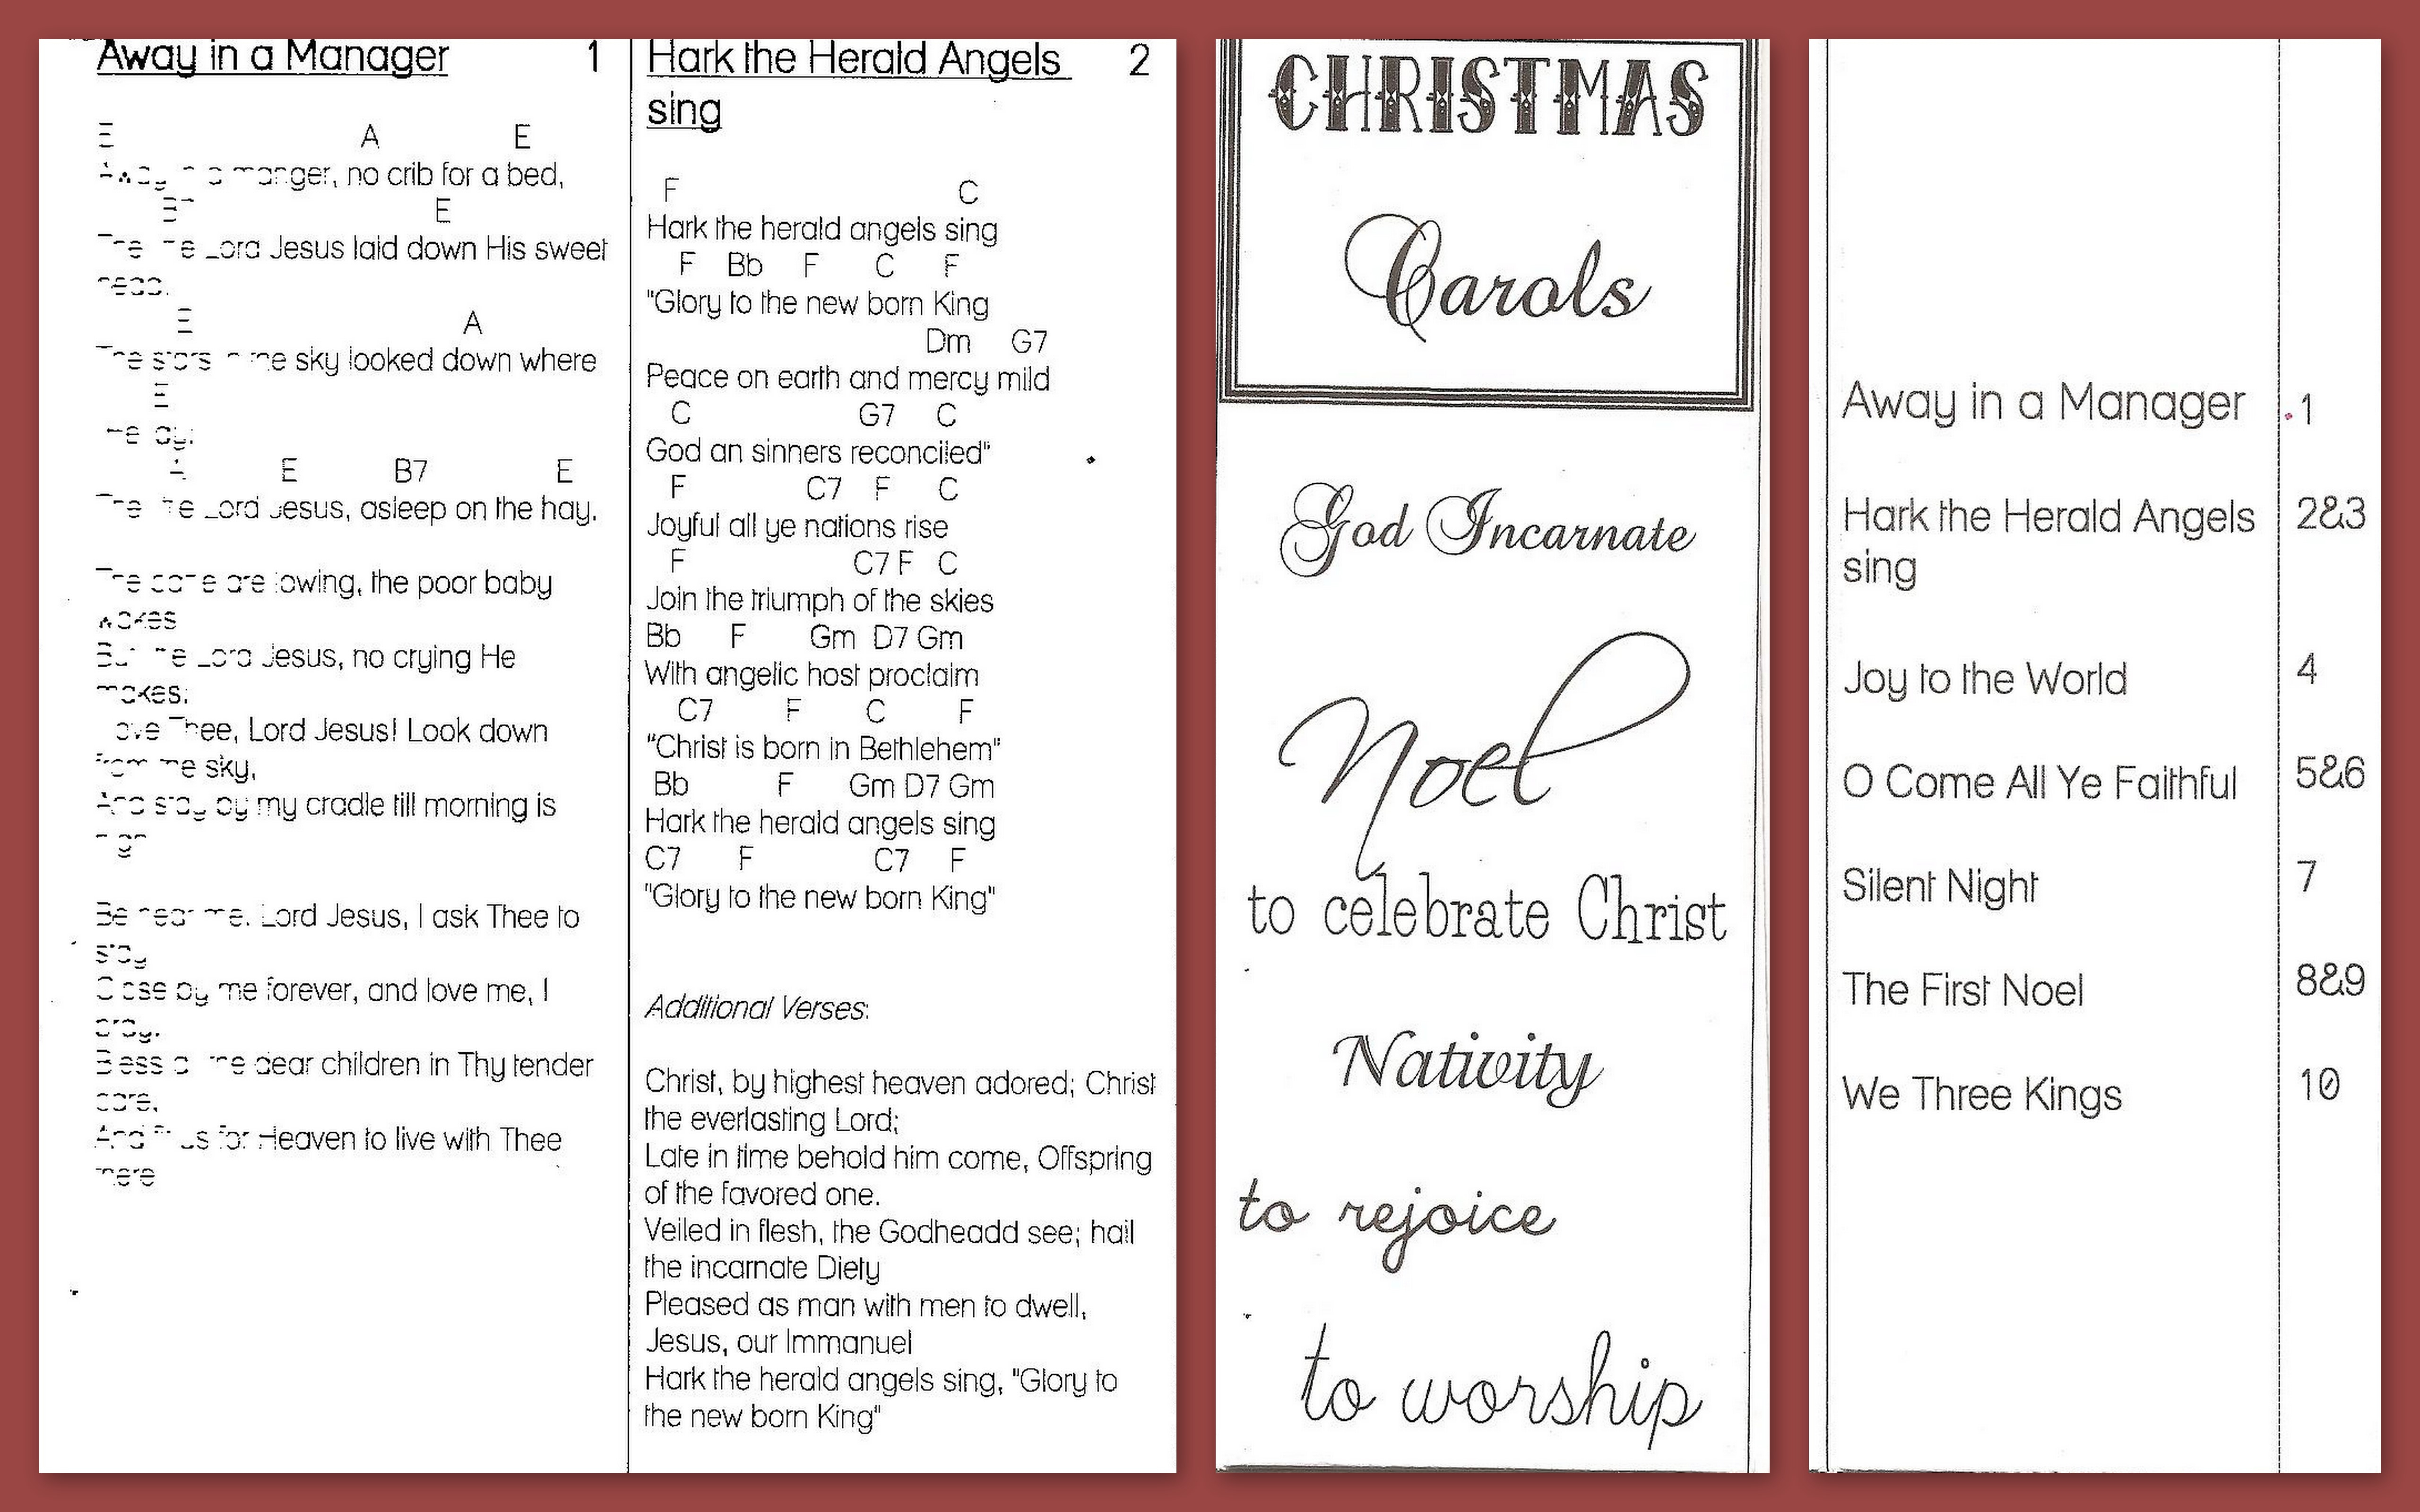 Away in a Manager 1
E A E
Away in a manger, no crib for a bed,
B7 E
The little Lord Jesus laid down His sweet
head.
E A
The stars in the sky looked down where
E
He lay;
A E B7 E
The little Lord Jesus, asleep on the hay.
The cattle are lowing, the poor baby
wakes
But little Lord Jesus, no crying He
makes;
I love Thee, Lord Jesus! Look down
from the sky,
And stay by my cradle till morning is
nigh
Be near me, Lord Jesus, I ask Thee to
stay
Close by me forever, and love me, I
pray.
Bless all the dear children in Thy tender
care,
And fit us for Heaven to live with Thee
there
Hark the Herald Angels 2
sing
F C
Hark the herald angels sing
F Bb F C F
"Glory to the new born King
Dm G7
Peace on earth and mercy mild
C G7 C
God an sinners reconciled"
F C7 F C
Joyful all ye nations rise
F C7 F C
Join the triumph of the skies
Bb F Gm D7 Gm
With angelic host proclaim
C7 F C F
"Christ is born in Bethlehem"
Bb F Gm D7 Gm
Hark the herald angels sing
C7 F C7 F
"Glory to the new born King"
Additional Verses:
Christ, by highest heaven adored; Christ
the everlasting Lord;
Late in time behold him come, Offspring
of the favored one.
Veiled in flesh, the Godheadd see; hail
the incarnate Diety
Pleased as man with men to dwell,
Jesus, our Immanuel
Hark the herald angels sing, "Glory to
the new born King"
CHRISTMAS
Carols
God Incarnate
Noel
to celebrate Christ
Nativity
to rejoice
to worship
Away in a Manager 1
Hark the Herald Angels 2&3
sing
Joy to the World 4
O Come All Ye Faithful 5&6
Silent Night 7
The First Noel 8&9
We Three Kings 10